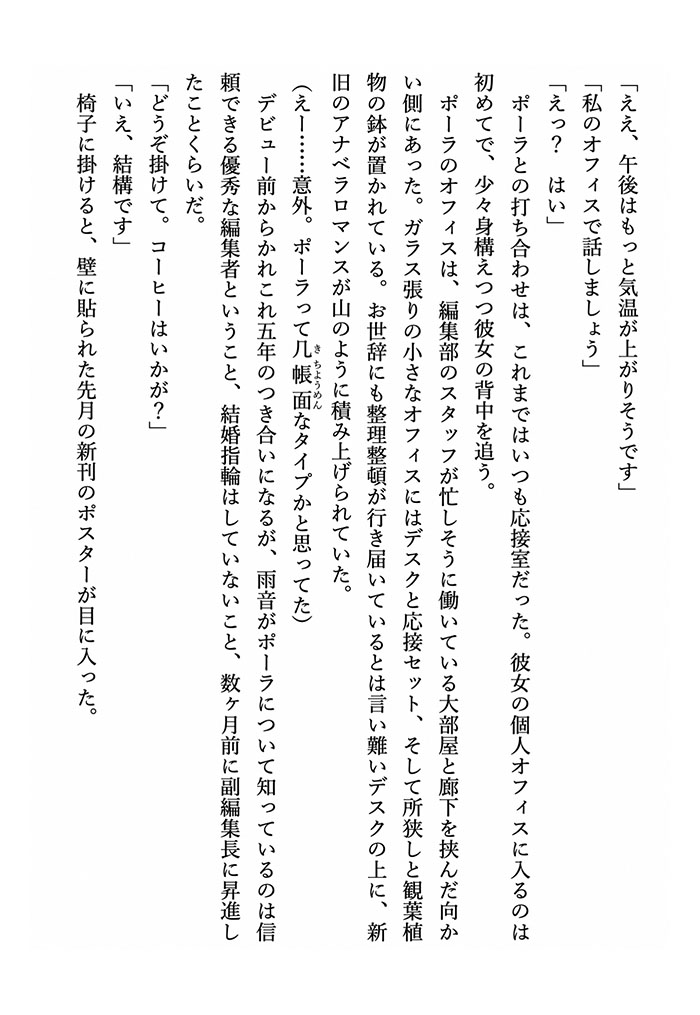 「ええ、午後はもっと気温が上がりそうです」
「私のオフィスで話しましょう」
「えっ?　はい」
　ポーラとの打ち合わせは、これまではいつも応接室だった。彼女の個人オフィスに入るのは
初めてで、少々身構えつつ彼女の背中を追う。
　ポーラのオフィスは、編集部のスタッフが忙しそうに働いている大部屋と廊下を挟んだ向か
い側にあった。ガラス張りの小さなオフィスにはデスクと応接セット、そして所狭しと観葉植
物の鉢が置かれている。お世辞にも整理整頓が行き届いているとは言い難いデスクの上に、新
旧のアナベラロマンスが山のように積み上げられていた。
(えー……意外。ポーラって几帳面なタイプかと思ってた)
　デビュー前からかれこれ五年のつき合いになるが、雨音がポーラについて知っているのは信
頼できる優秀な編集者ということ、結婚指輪はしていないこと、数ヶ月前に副編集長に昇進し
たことくらいだ。
「どうぞ掛けて。コーヒーはいかが?」
「いえ、結構です」
　椅子に掛けると、壁に貼られた先月の新刊のポスターが目に入った。